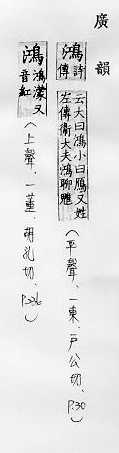 廣韻
鴻 詩傳云大曰鴻小曰鴈又姓左傳衛大夫鴻聊魋(平聲、一東、戶公切、P.30)
鴻 鴻濛又音紅(上聲、一董、胡孔切、P.236)